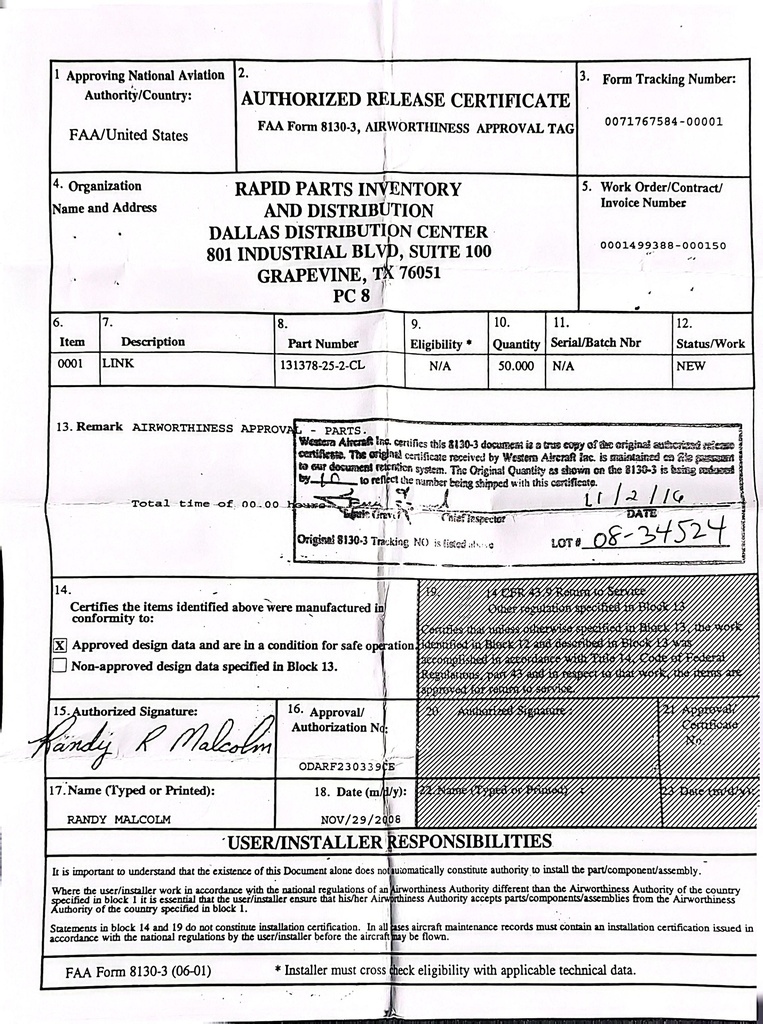 1 Approving National Aviation
Authority/Country:
FAA/United States
2.
AUTHORIZED RELEASE CERTIFICATE
FAA Form 8130-3, AIRWORTHINESS APPROVAL TAG
3. Form Tracking Number:
0071767584-00001
4. Organization
Name and Address
RAPID PARTS INVENTORY
AND DISTRIBUTION
DALLAS DISTRIBUTION CENTER
801 INDUSTRIAL BLVD, SUITE 100
GRAPEVINE, TX 76051
PC 8
5. Work Order/Contract/
Invoice Number
0001499388-000150
6. 7. 8. 9. 10. 11. 12.
Item Description Part Number Eligibility * Quantity Serial/Batch Nbr Status/Work
0001 LINK 131378-25-2-CL N/A 50.000 N/A NEW
13. Remark AIRWORTHINESS APPROVAL - PARTS.
Western Aircraft Inc. certifies this 8130-3 document is a true copy of the original authorized release
certificate. The original certificate received by Western Aircraft Inc. is maintained on file pursuant
to our document retention system. The Original Quantity as shown on the 8130-3 is being reduced
by 10 to reflect the number being shipped with this certificate.
Total time of 00.00
11/2/16
Chief Inspector DATE
Original 8130-3 Tracking NO is listed above LOT # 08-34524
14.
Certifies the items identified above were manufactured in
conformity to:
X Approved design data and are in a condition for safe operation.
Non-approved design data specified in Block 13.
19. 14 CFR 43.9 Return to Service
Other regulation specified in Block 13
Certifies that unless otherwise specified in Block 13, the work
identified in Block 12 and described in Block 13 was
accomplished in accordance with Title 14, Code of Federal
Regulations, part 43 and in respect to that work, the items are
approved for return to service.
15. Authorized Signature:
Randy R Malcolm
16. Approval/
Authorization No:
ODARF230339CE
20. Authorized Signature:
21. Approval/
Certificate
No.
17. Name (Typed or Printed):
RANDY MALCOLM
18. Date (m/d/y):
NOV/29/2008
22. Name (Typed or Printed) :
23 Date (m/d/y):
USER/INSTALLER RESPONSIBILITIES
It is important to understand that the existence of this Document alone does not automatically constitute authority to install the part/component/assembly.
Where the user/installer work in accordance with the national regulations of an Airworthiness Authority different than the Airworthiness Authority of the country
specified in block 1 it is essential that the user/installer ensure that his/her Airworthiness Authority accepts parts/components/assemblies from the Airworthiness
Authority of the country specified in block 1.
Statements in block 14 and 19 do not constitute installation certification. In all cases aircraft maintenance records must contain an installation certification issued in
accordance with the national regulations by the user/installer before the aircraft may be flown.
FAA Form 8130-3 (06-01) * Installer must cross check eligibility with applicable technical data.